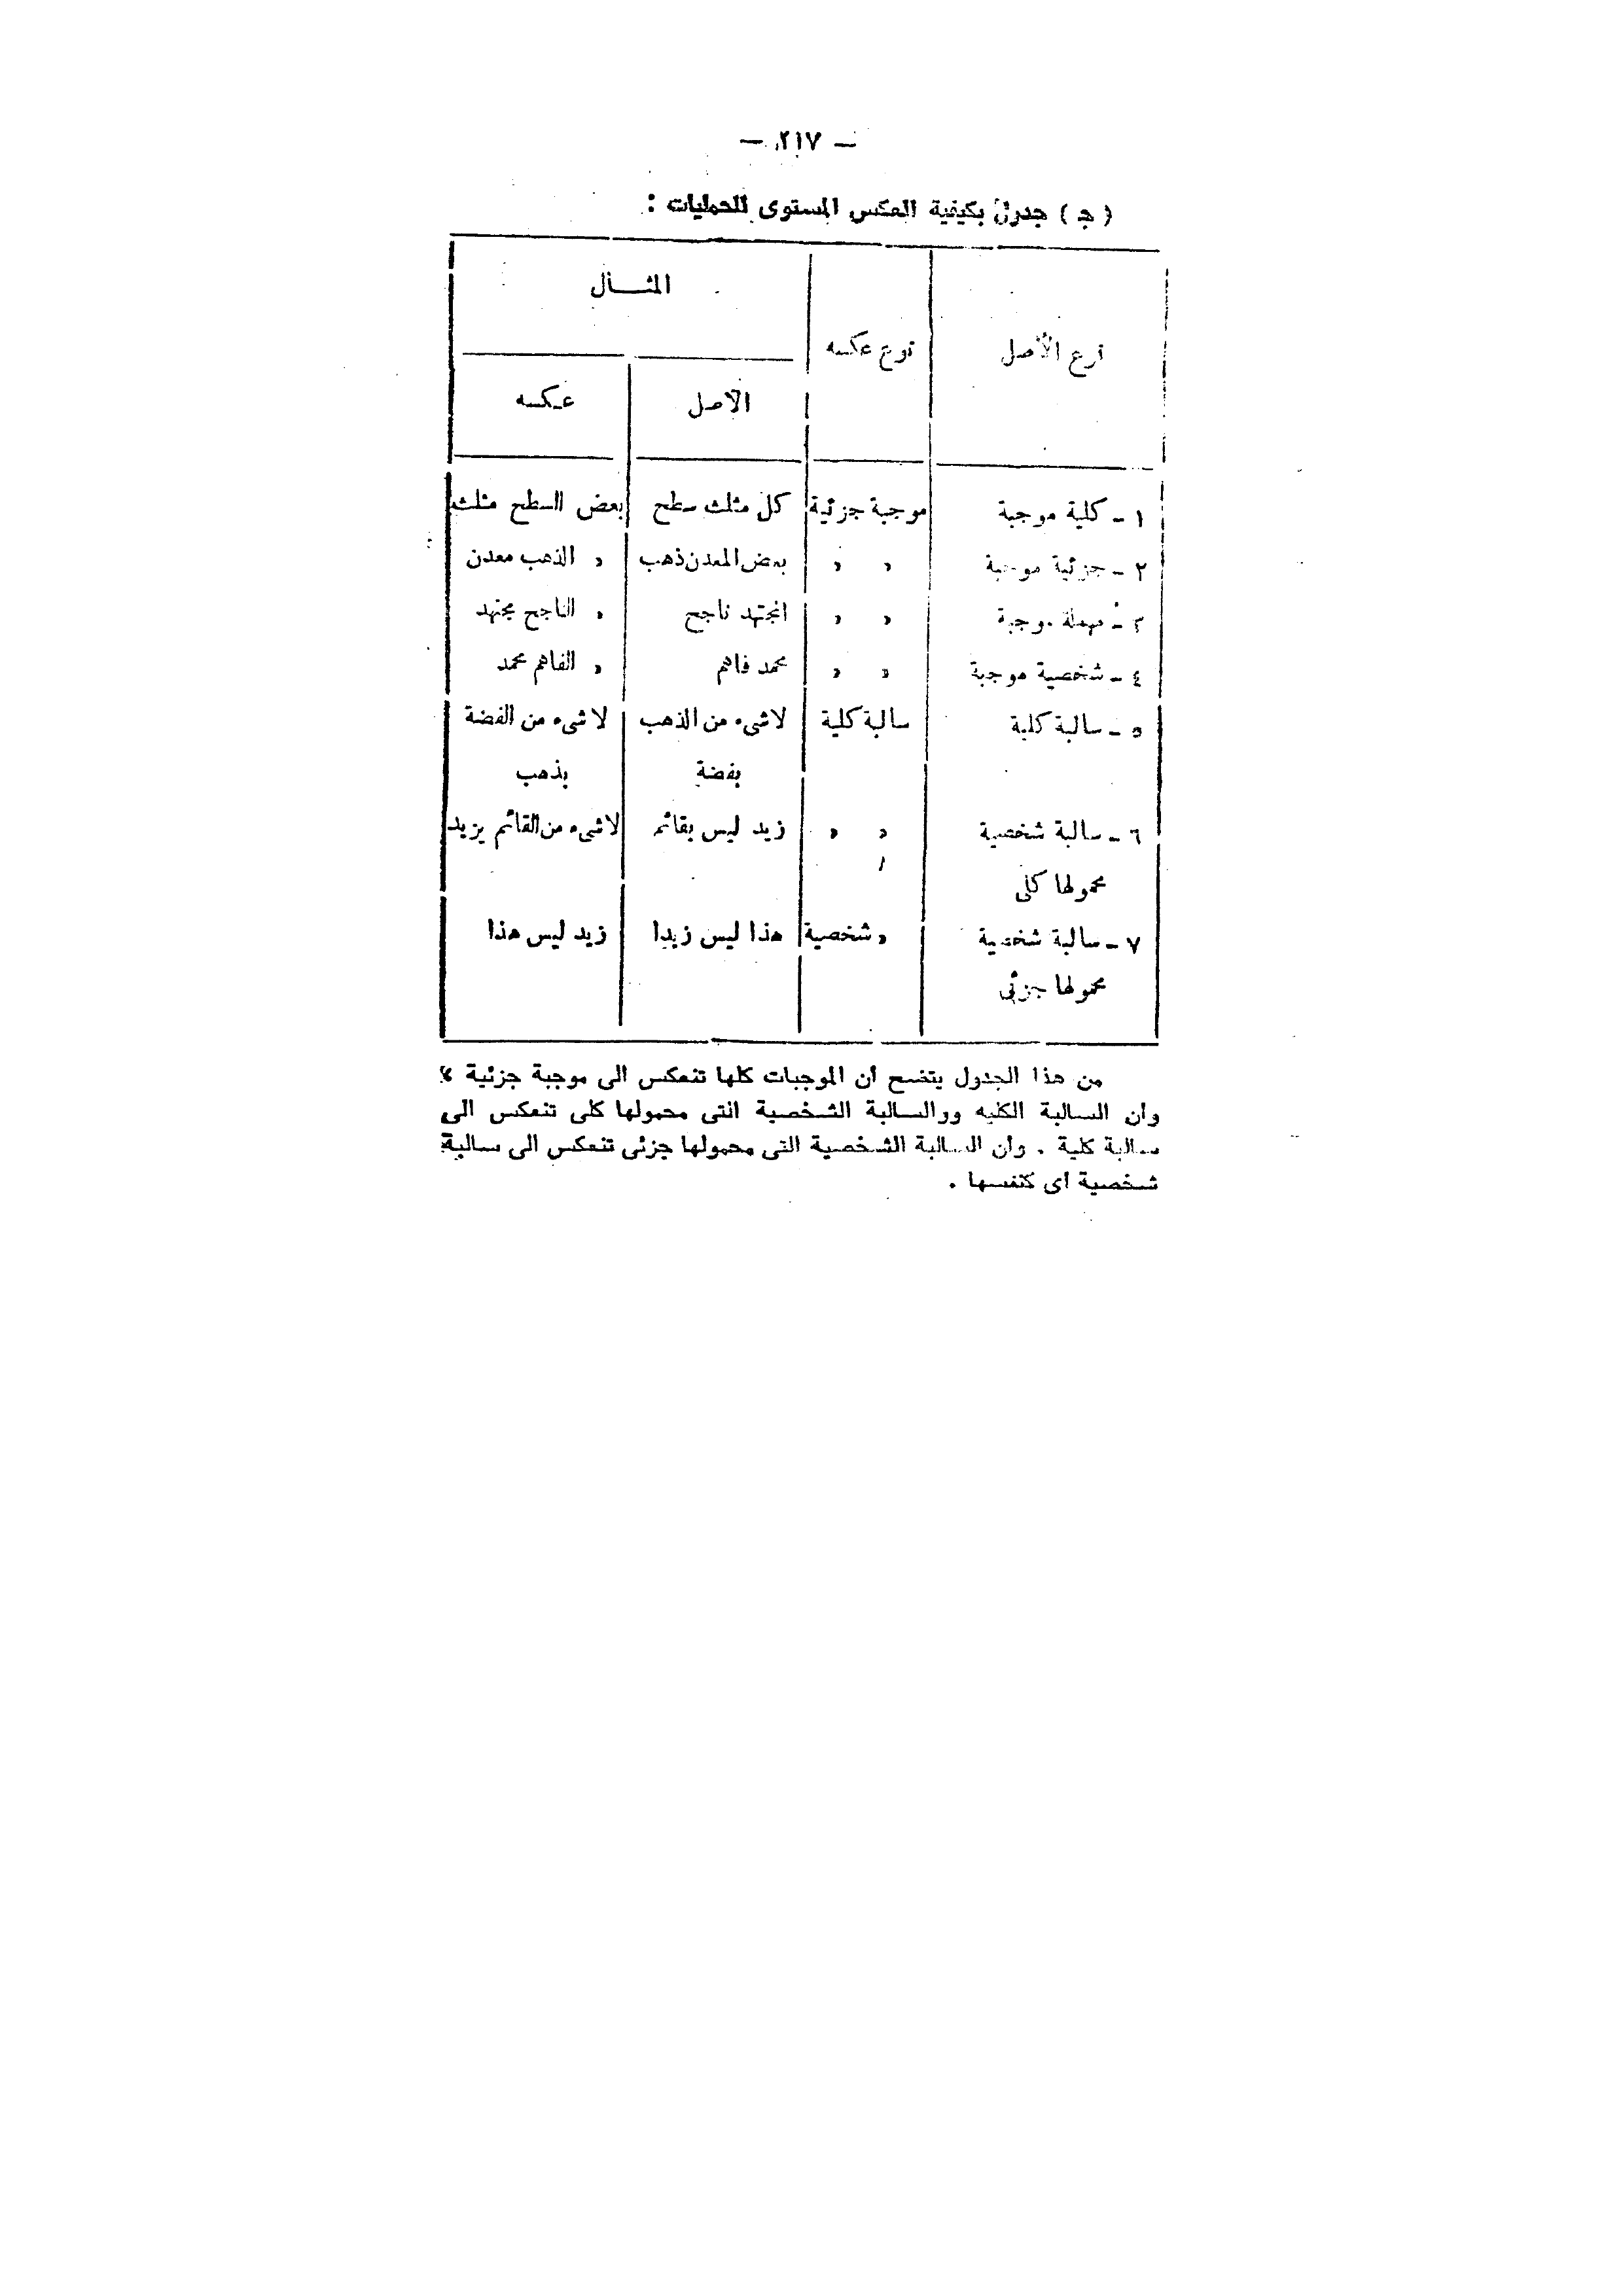 — ٢١٧ —
( ج ) جدول بكيفية العكس المستوى للحمليات :
نوع الأصل نوع عكسه المثـــال
الأصل عكسه
١ - كلية موجبة موجبة جزئية كل مثلث سطح بعض السطح مثلث
٢ - جزئية موجبة » » بعض المعدن ذهب » الذهب معدن
٣ - مهملة موجبة » » المجتهد ناجح » الناجح مجتهد
٤ - شخصية موجبة » » محمد فاهم » الفاهم محمد
٥ - سالبة كلية سالبة كلية لاشىء من الذهب لاشىء من الفضة
بفضة بذهب
٦ - سالبة شخصية » » زيد ليس بقائم لاشىء من القائم بزيد
محمولها كلى
٧ - سالبة شخصية » شخصية هذا ليس زيدا زيد ليس هذا
محمولها جزئى
من هذا الجدول يتضح أن الموجبات كلها تنعكس الى موجبة جزئية ،
وأن السالبة الكليه ووالسالبة الشخصية التى محمولها كلى تنعكس الى
سالبة كلية . وأن السالبة الشخصية التى محمولها جزئى تنعكس الى سالبة
شخصية أى كنفسها .